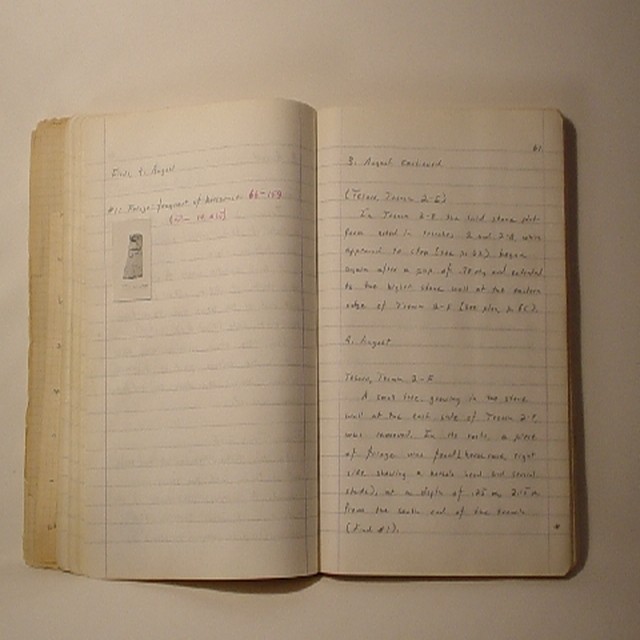 Finds 4. August
#1: Frieze: fragment of horseman 66-159
61.
3. August continued
(Terrace, Trench 2-E)
In Trench 2-E the solid stone plat-
form noted in trenches 2 and 2-D which
appeared to stop (see p. ) began
again after a gap of .70 m, and extended
to the higher stone wall at the eastern
edge of Trench 2-E (see plan, p. ).
4. August
Terrace, Trench 2-E
A small tree, growing in the stone
wall at the east side of Trench 2-E,
was removed. In its roots, a piece
of frieze was found, horseman, right
side, showing a horse's head and
at a depth of .25 m, 2.15 m
from the south end of the trench
(find #1).